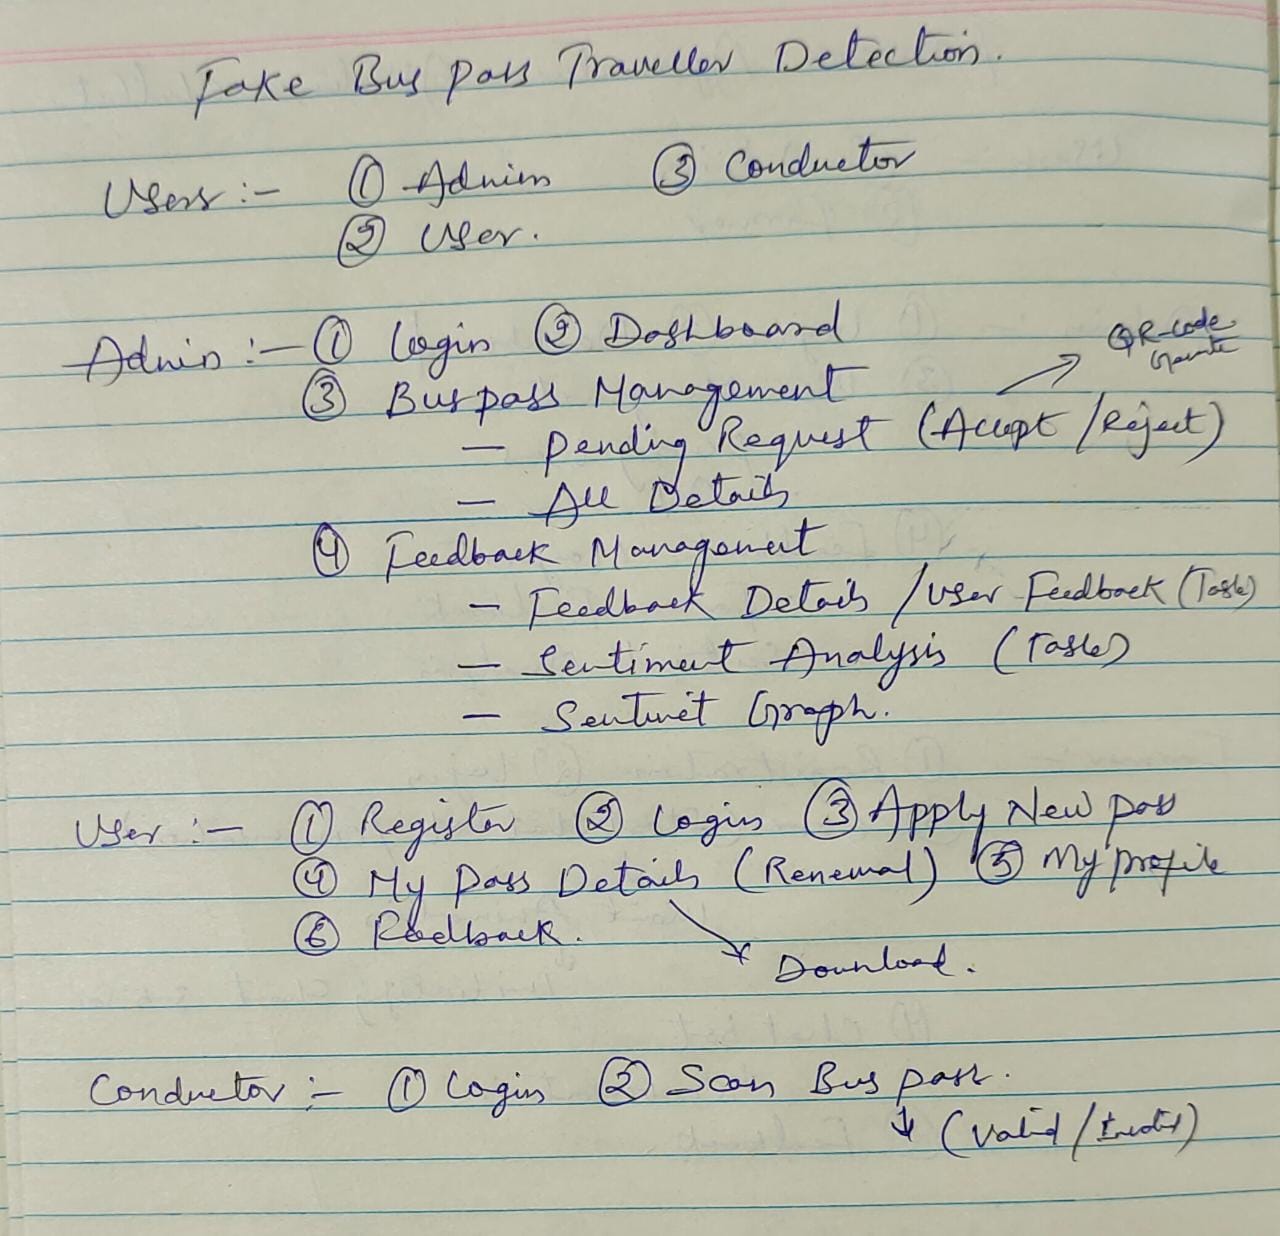 Fake Bus Pass Traveller Detection.
Users :- ① Admin ③ Conductor
② User.
Admin :- ① Login ② Dashboard
QR-code
③ Bus pass Management
- Pending Request (Accept / Reject)
- All Details
④ Feedback Management
- Feedback Details / User Feedback
- Sentiment Analysis
- Sentimet Graph.
User :- ① Register ② Login ③ Apply New pass
④ My Pass Details (Renewal) ⑤ My profile
⑥ Feedback.
Download.
Conductor :- ① Login ② Scan Bus pass.
↓ (Valid / Invalid)